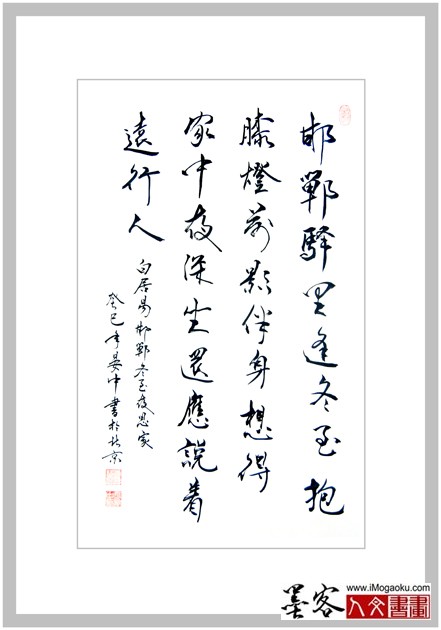 邯鄲驛里逢冬至抱
膝燈前影伴身想得
家中夜深坐還應說着
遠行人
白居易邯鄲冬至夜思家
癸巳年晏中書於北京
墨客
www.iMogaoku.com
人文書畫